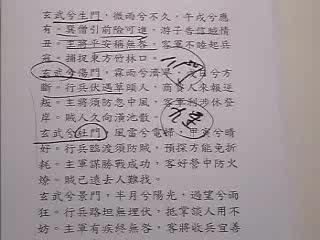 玄武兮生門，微雨兮不久，午戌兮應
有。巽僧引前險可進，游子告賊情
丑。主將平安稱無咎，客軍不睦起兵
寇。捕捉東方竹林口。
玄武兮傷門，霖雨兮濟，日兮方
斷。行兵伏遇草頭人，商賣人來報逆
叛。主將須防忽中風，客軍利涉休登
岸。賊人久向潢池散。
玄武兮杜門，風雷兮電，甲寅兮晴
好。行兵臨渡須防賊，預探方能免折
耗。主軍謀勝戰成功，客好營中防火
燎。賊已遠去人難找。
玄武兮景門，半月兮陽光，過望兮雨
狂。行兵路坦無埋伏，抵掌談人用不
妨。主軍有疾終無咎，客將收兵宜善